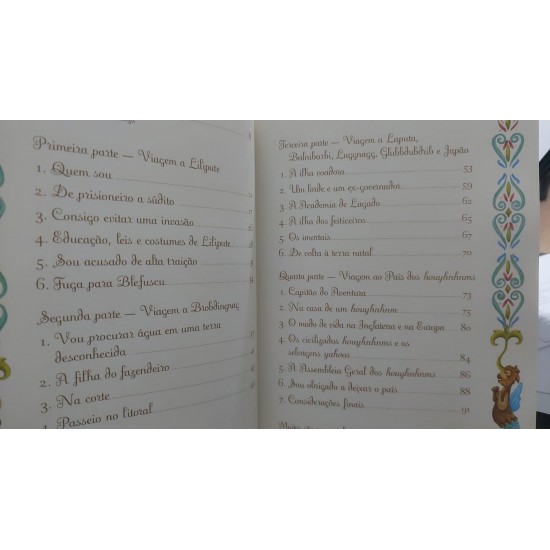 Primeira parte — Viagem a Lilipute
1. Quem sou
2. De prisioneiro a súdito
3. Consigo evitar uma invasão
4. Educação, leis e costumes de Lilipute
5. Sou acusado de alta traição
6. Fuga para Blefuscu
Segunda parte — Viagem a Brobdingnag
1. Vou procurar água em uma terra
desconhecida
2. A filha do fazendeiro
3. Na corte
4. Passeio no litoral
Terceira parte — Viagem a Laputa,
Balnibarbi, Luggnagg, Glubbdubdrib e Japão
1. A ilha voadora 53
2. Um lorde e um ex-governador 59
3. A Academia de Lagado 62
4. A ilha dos feiticeiros 65
5. Os imortais 67
6. De volta à terra natal 70
Quarta parte — Viagem ao País dos houyhnhnms
1. Capitão do Aventura 73
2. Na casa de um houyhnhnm 75
3. O modo de vida na Inglaterra e na Europa 80
4. Os civilizados houyhnhnms e os
selvagens yahoos 84
5. A Assembleia Geral dos houyhnhnms 86
6. Sou obrigado a deixar o país 88
7. Considerações finais 91